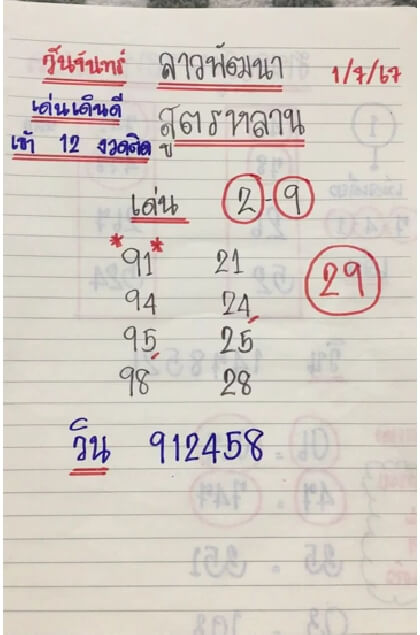 วันจันทร์ ลาวพัฒนา 1/7/67
เด่นเดินดี สูตรหลาน
เข้า 12 งวดติด
เด่น 2-9
*91* 21
29
94 24
95 25
98 28
วิน 912458